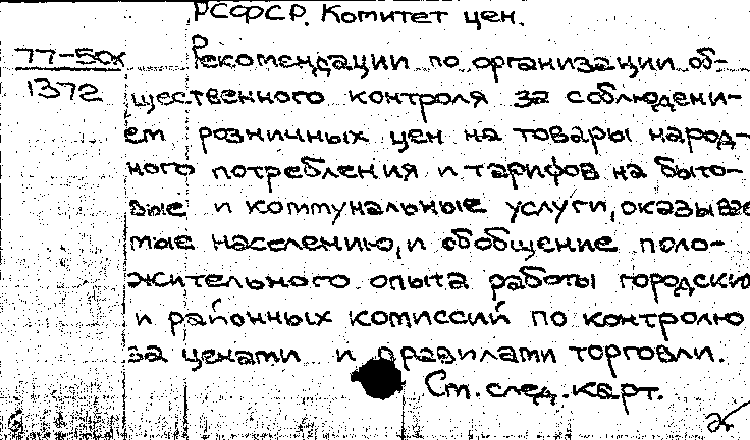 РСФСР. Комитет цен.
77-50х
1372
Рекомендации по организации об-
щественного контроля за соблюдени-
ем розничных цен на товары народ-
ного потребления и тарифов на быто-
вые и коммунальные услуги, оказывае
мые населению, и обобщение поло-
жительного опыта работы городских
и районных комиссий по контролю
за ценами и правилами торговли.
См. след. карт.